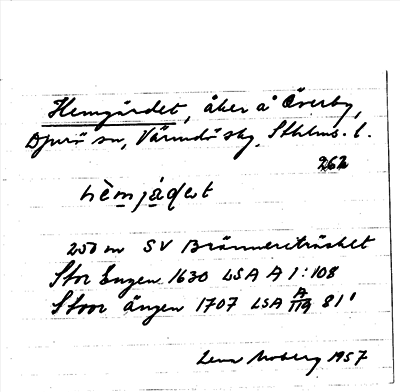 Hemgärdet, åker å Överby,
Djurö sn, Värmdö skg, Sthlms. l.
262
hèmjádet
250 m SV Brännereträsket
Stor Engen 1630 LSA A 1:108
Stoor ängen 1707 LSA A/119 81'
Lena Moberg 1957